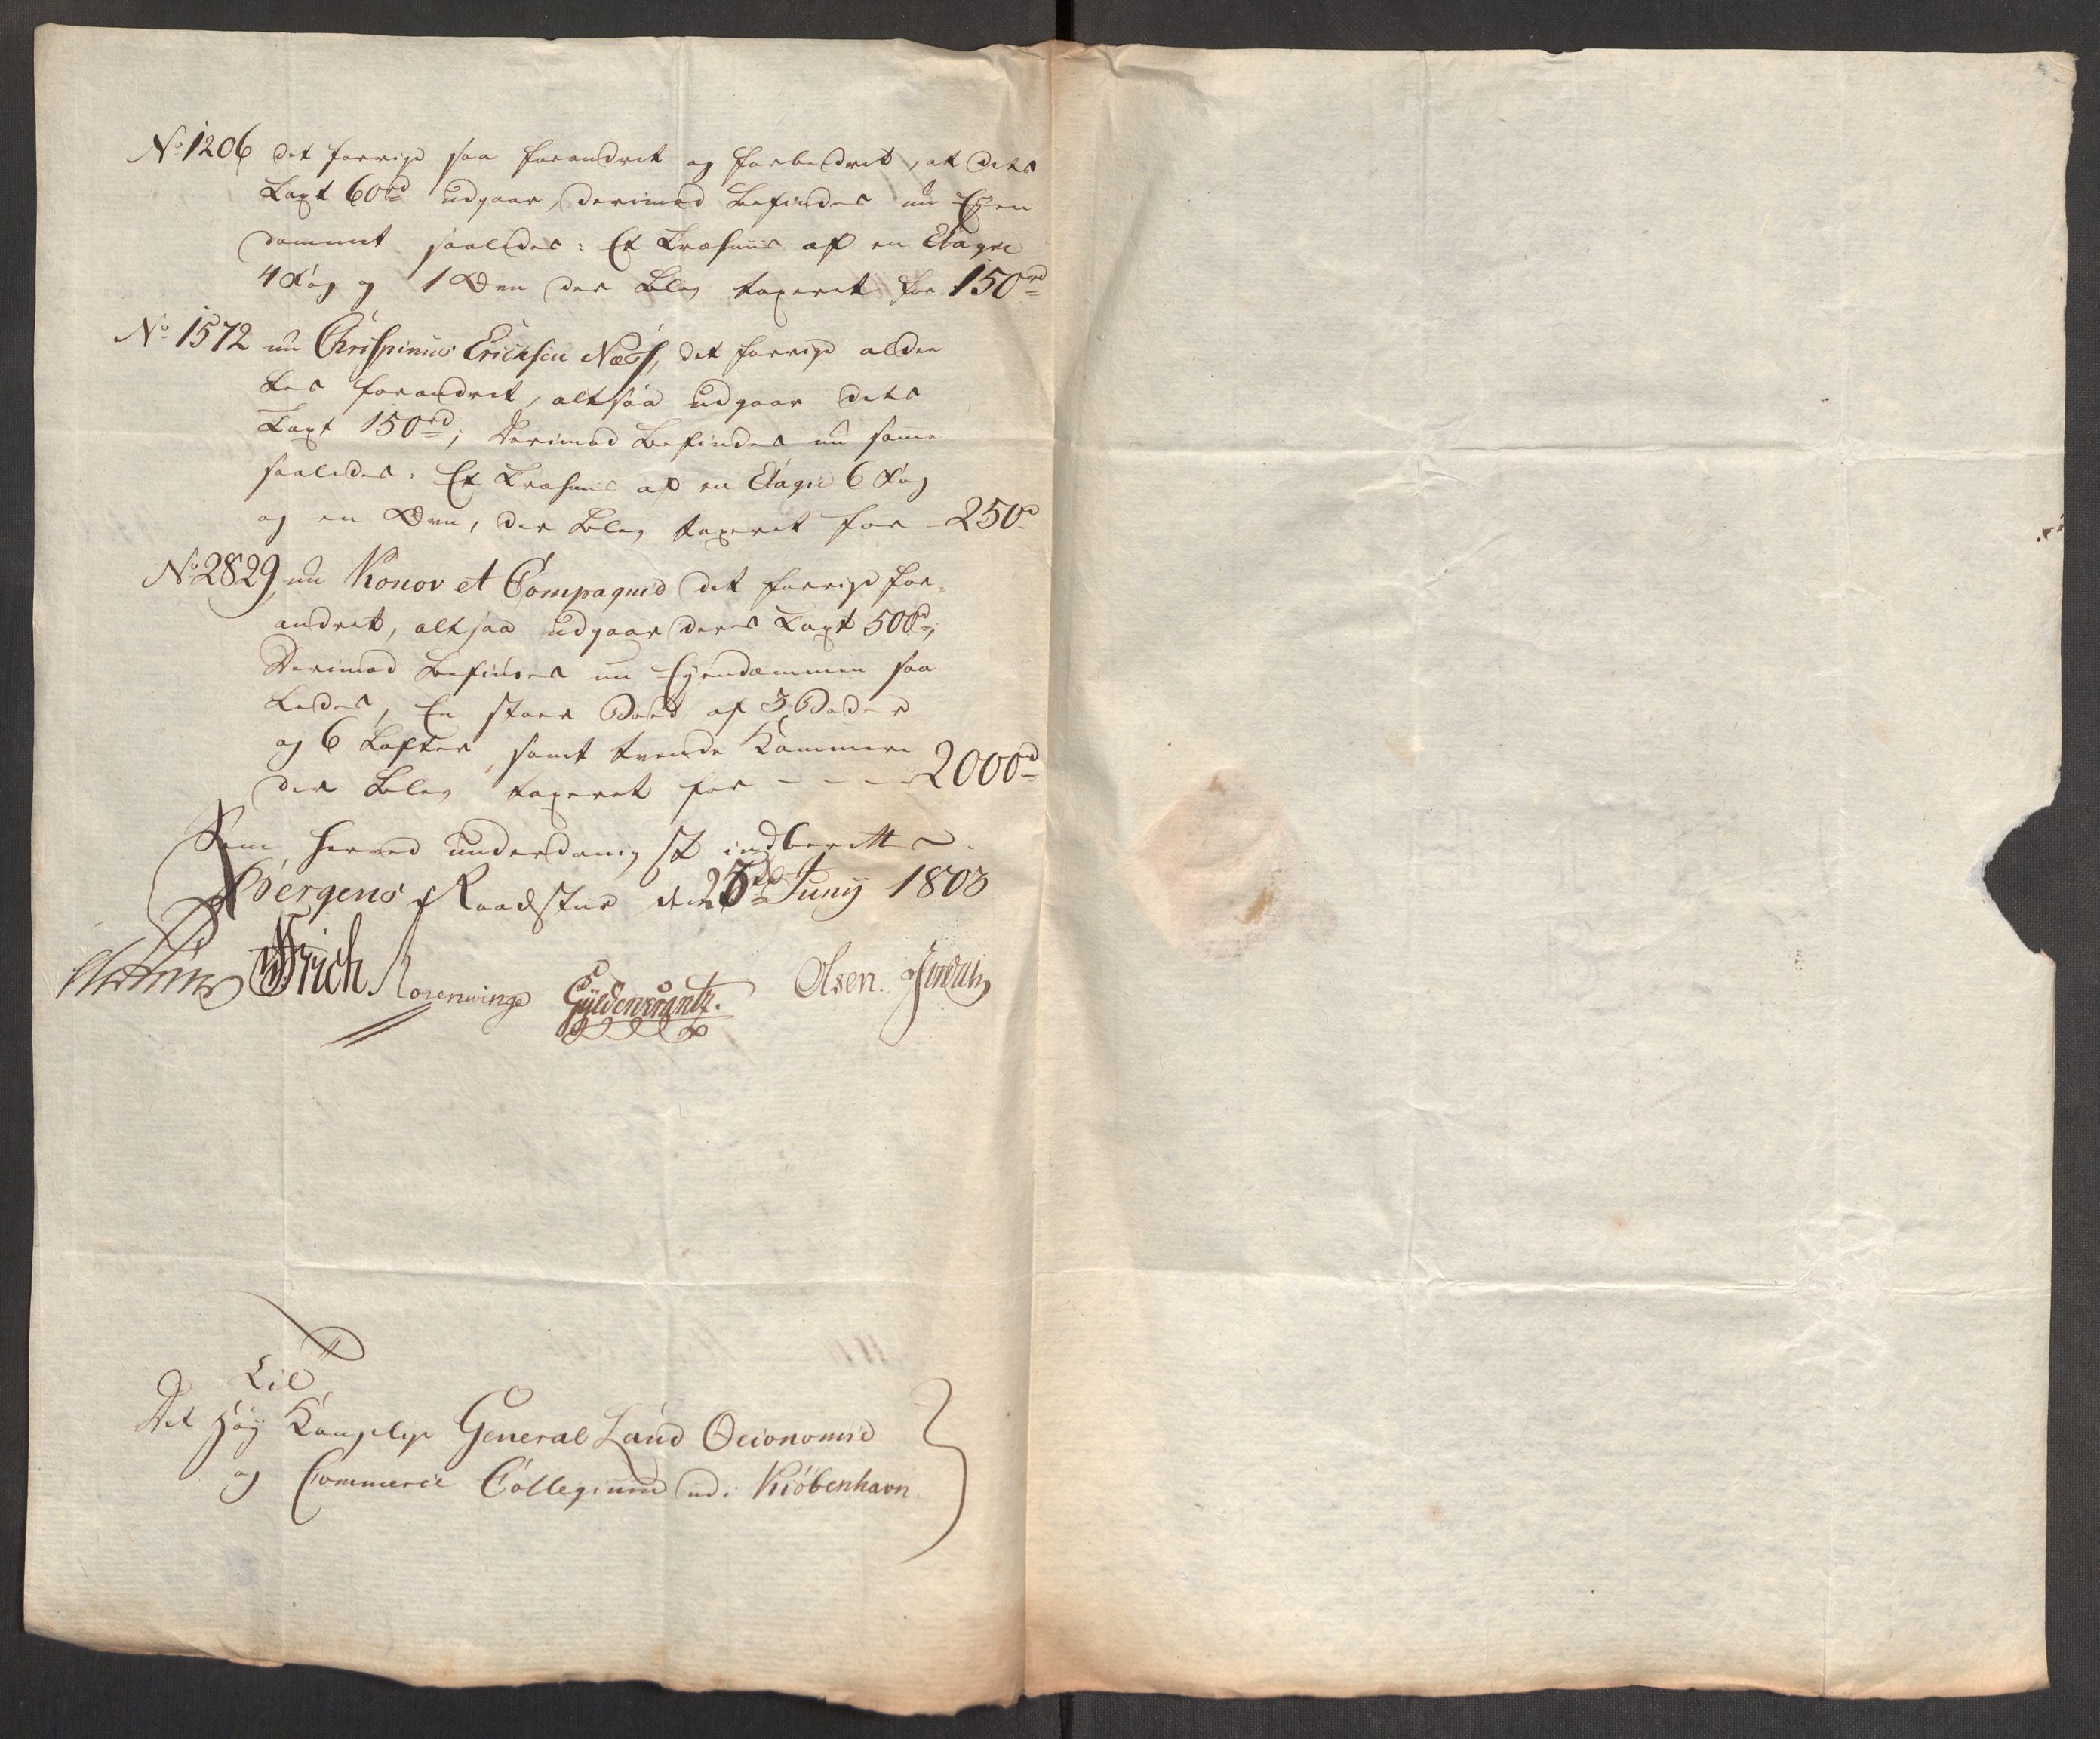 No 1206 det forrige saa forandret og forbedret, at dets
Taxt 60 rd udgaar, derimod befindes nu Eyen
dommet saaledes: Et Træhuus af en Etagie
4 Fag og 1 Ovn der blev taxeret for 150 rd
No 1572 nu Chrispinus Erichsen Næss, det forrige aldee
les forandret, altsaa udgaar dets
Taxt 150 rd; derimod befindes nu samme
saaledes: Et Træhuus af en Etagie 6 Fag
og en Ovn, der blev taxeret for 250 rd
No 2829, nu Konov et Compagnie det forrige for
andret, altsaa udgaar deres Taxt 500 rd,
Derimod befindes nu Eyendommen saa
ledes, En stoer Boed af 3 Boder
og 6 Lofter, samt trende Kammere
der blev taxeret for - - - - 2000 rd
Som herved underdanigst indberettes.
Bergens Raadstue den 25de Junij 1803
Krich. Rosenvinge Gyldenkrantz. Olsen.
Til
Det Høy Kongelige General Land Oeconomie
og Commerce Collegium udi Kiöbenhavn